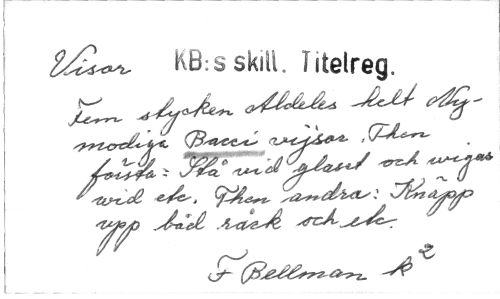 Visor KB:s skill. Titelreg.
Fem stycken Aldeles helt Ny-
modiga Bacci vijsor. Then
första: Stå vid glaset och wigas
wid etc. Then andra: Knäpp
upp båd råck och etc.
F Bellman k²